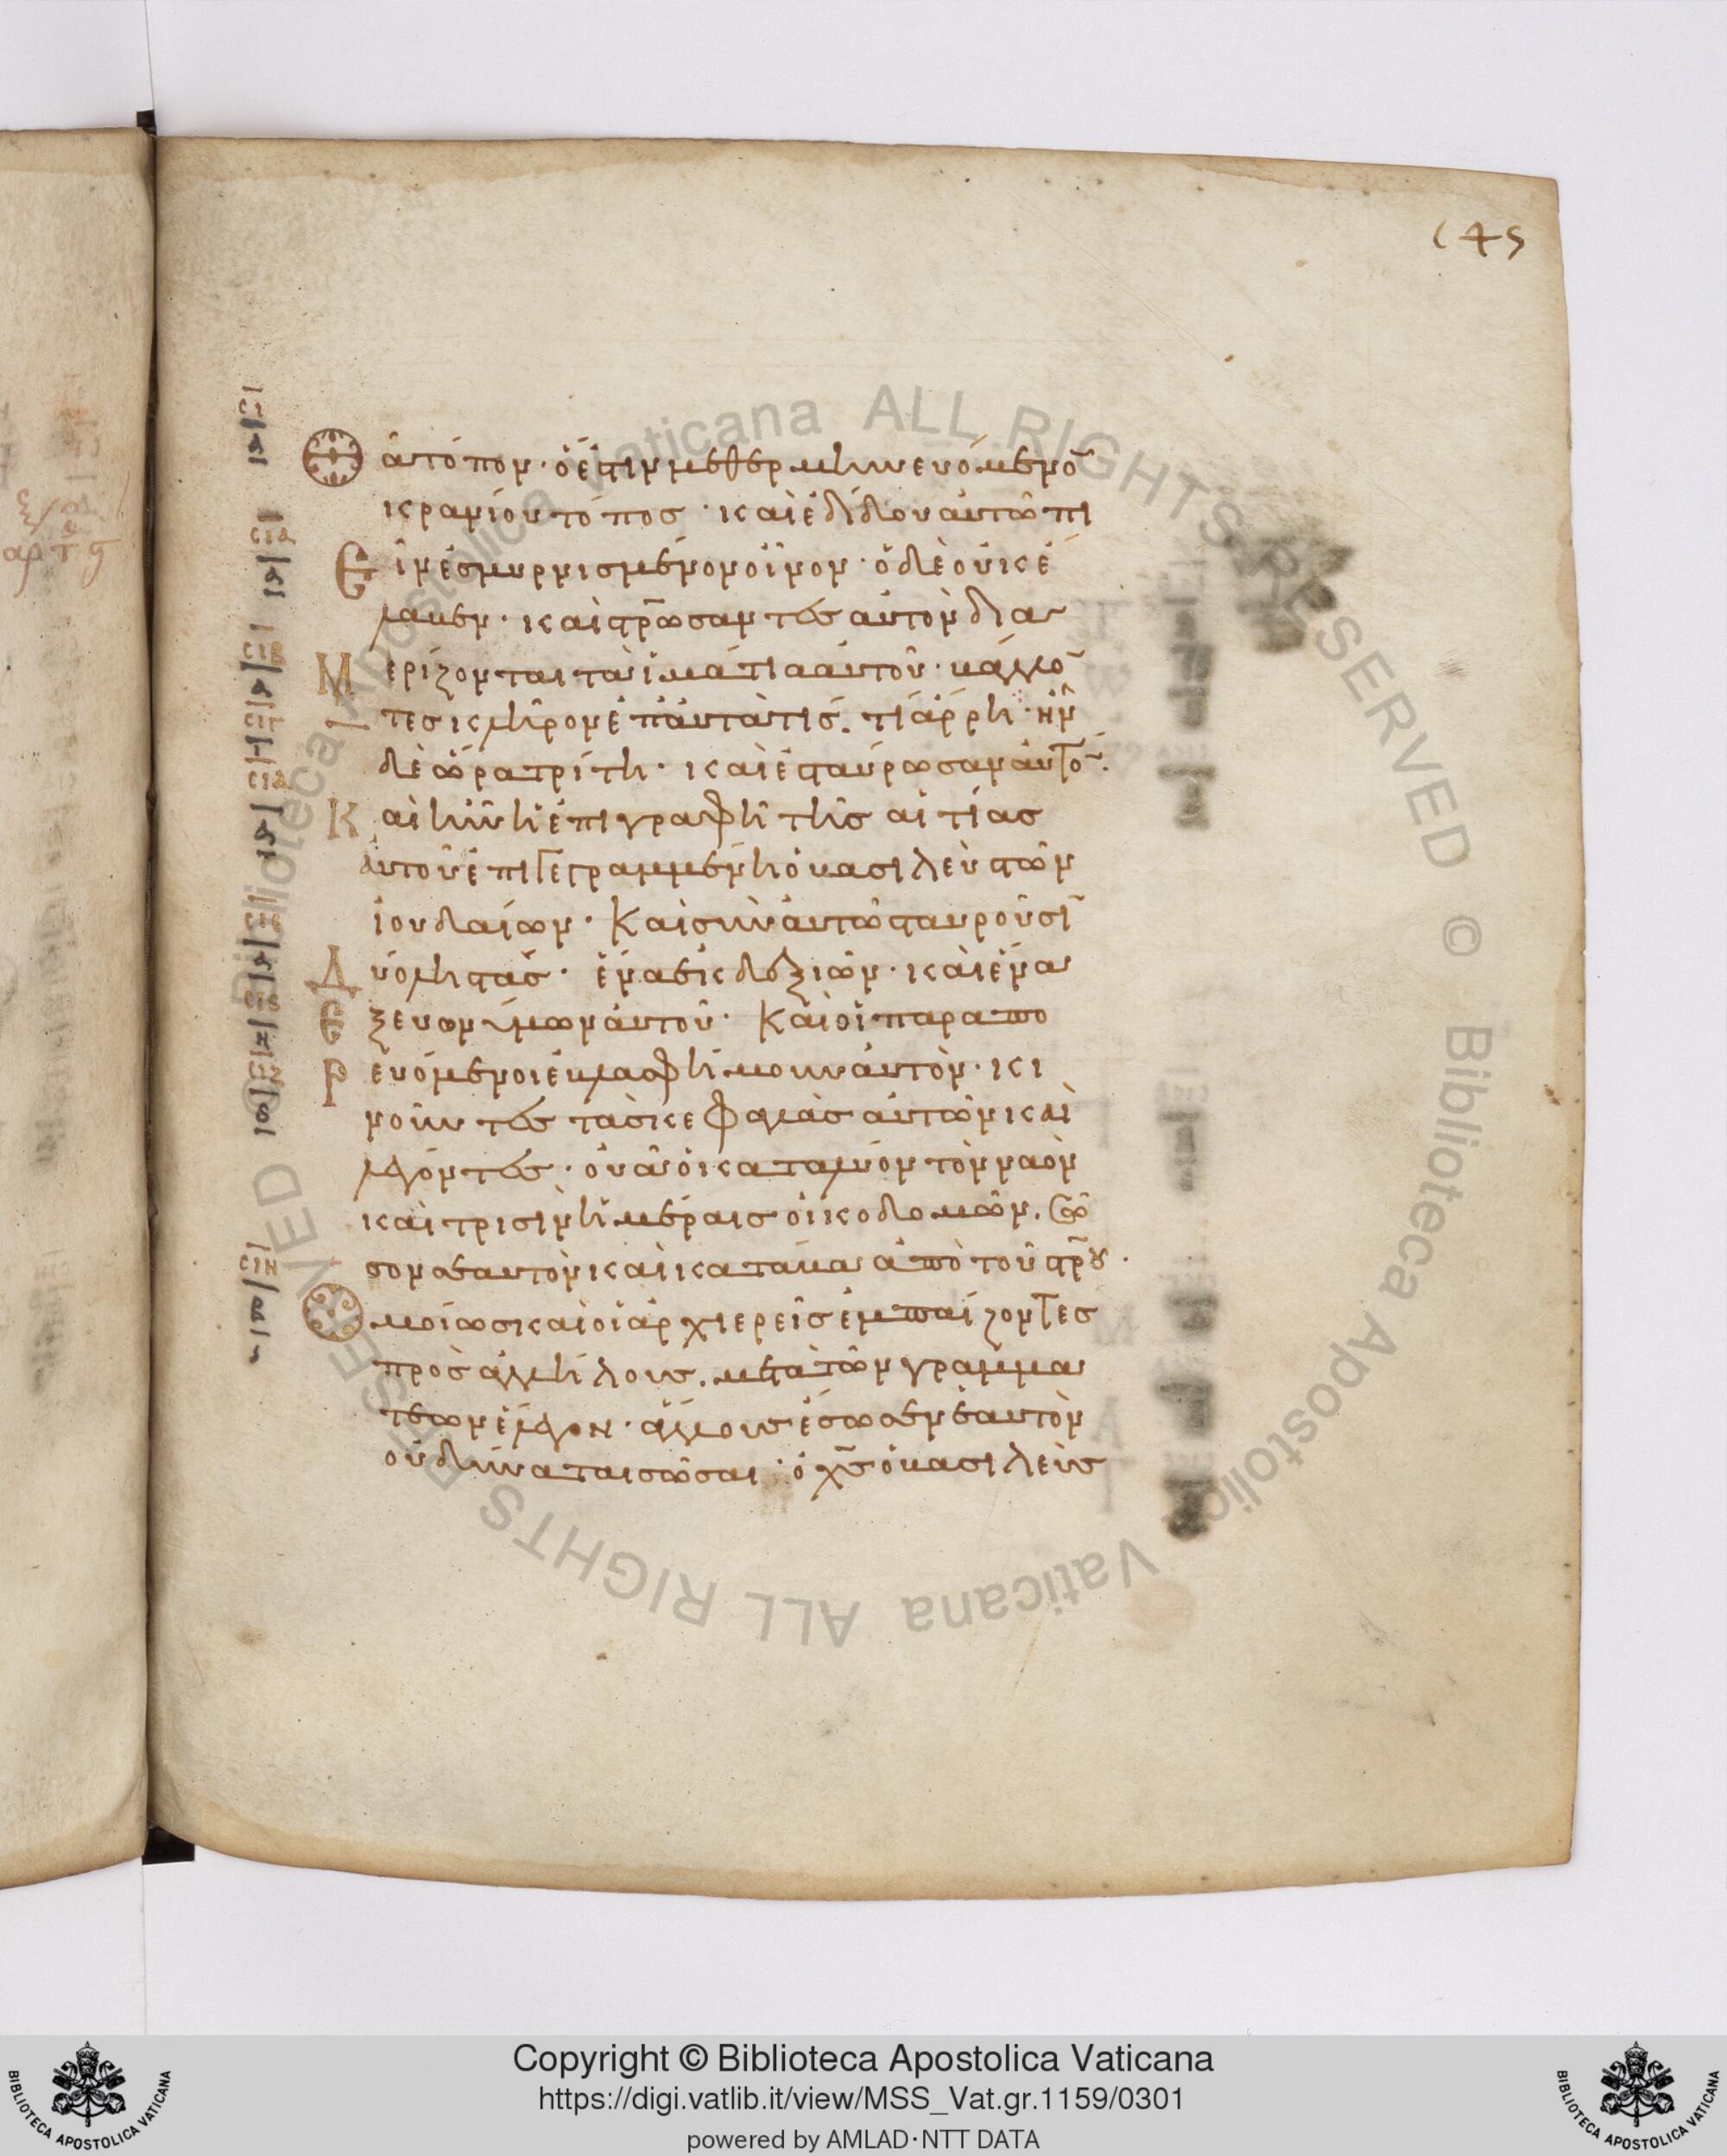 145
θα τόπον· ὅ ἐστιν μεθερμηνευόμενο̄
κρανίου τόπος· καὶ ἐδίδουν αὐτῶ πι
εῖν ἐσμυρνισμένον οἶνον· ὁ δὲ οὐκ ἔ
λαβεν· καὶ στρ̄ώσαντες αὐτὸν δια
Μερίζονται τὰ ἱμάτια αὐτοῦ· βάλλο̄
τες κλῆρον ἐπ' αὐτὰ τίς. τί ἄρρη· ἦν
δὲ ὥρα τρίτη· καὶ ἐσταύρωσαν αὐτο̄·
Καὶ ἦν ἡ ἐπιγραφὴ τῆς αἰτίας
αὐτοῦ ἐπιγεγραμμένη ὁ βασιλεὺς τῶν
ἰουδαίων· Καὶ σὺν αὐτῶ σταυροῦσῑ
Δύο ληστάς· ἕνα ἐκ δεξιῶν· καὶ ἕνα
Ἐξ εὐωνύμων αὐτοῦ· Καὶ οἱ παραπο
Ρευόμενοι ἐβλασφήμουν αὐτὸν· κι
νοῦντες τὰς κεφαλὰς αὐτῶν καὶ
λέγοντες· οὐὰ ὁ καταλύων τὸν ναὸν
καὶ τρισὶν ἡμέραις οἰκοδομῶν. σῶ
σον σεαυτὸν καὶ κατάβα ἀπὸ τοῦ στρ̄ου·
Ὁμοίως καὶ οἱ ἀρχιερεῖς ἐμπαίζοντες
πρὸς ἀλλήλους. μετὰ τῶν γραμμα
τέων ἔλεγον· ἄλλους ἔσωσεν ἑαυτὸν
οὐ δύναται σῶσαι· ὁ χ̄ς ὁ βασιλεὺς
Copyright © Biblioteca Apostolica Vaticana
https://digi.vatlib.it/view/MSS_Vat.gr.1159/0301
powered by AMLAD·NTT DATA
BIBLIOTECA APOSTOLICA VATICANA
BIBLIOTECA APOSTOLICA VATICANA